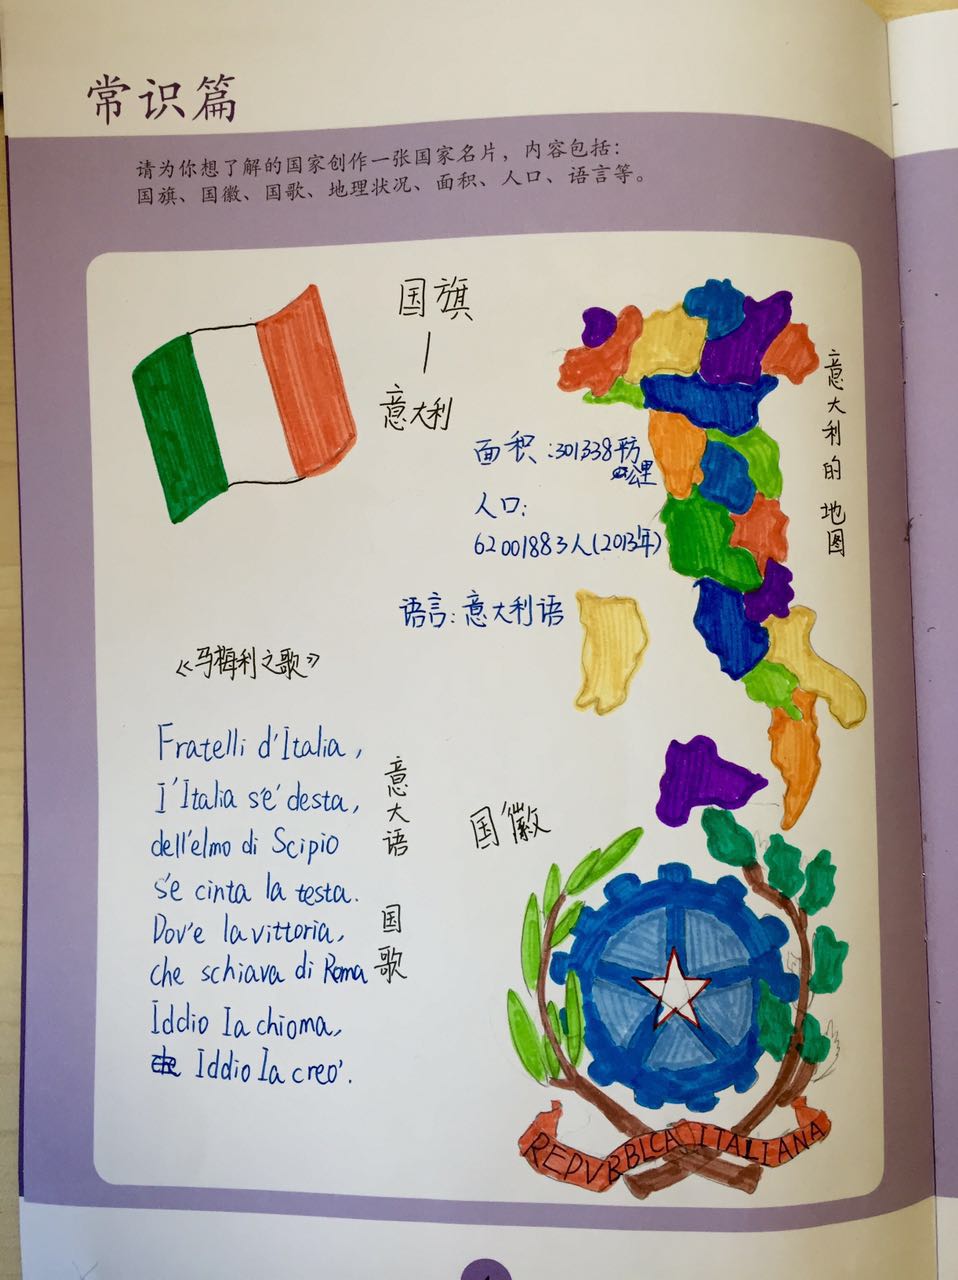 常识篇
请为你想了解的国家创作一张国家名片，内容包括：
国旗、国徽、国歌、地理状况、面积、人口、语言等。
国旗
|
意大利
意大利的地图
面积：301338平方
公里
人口：
62001883人(2013年)
语言：意大利语
《马梅利之歌》
Fratelli d'Italia,
I'Italia s'e' desta,
dell'elmo di Scipio
s'e cinta la testa.
Dov'e la vittoria,
che schiava di Roma
Iddio Ia chioma,
Iddio Ia creo'.
意大语 国歌
国徽
REPVBBLCA ITALIANA